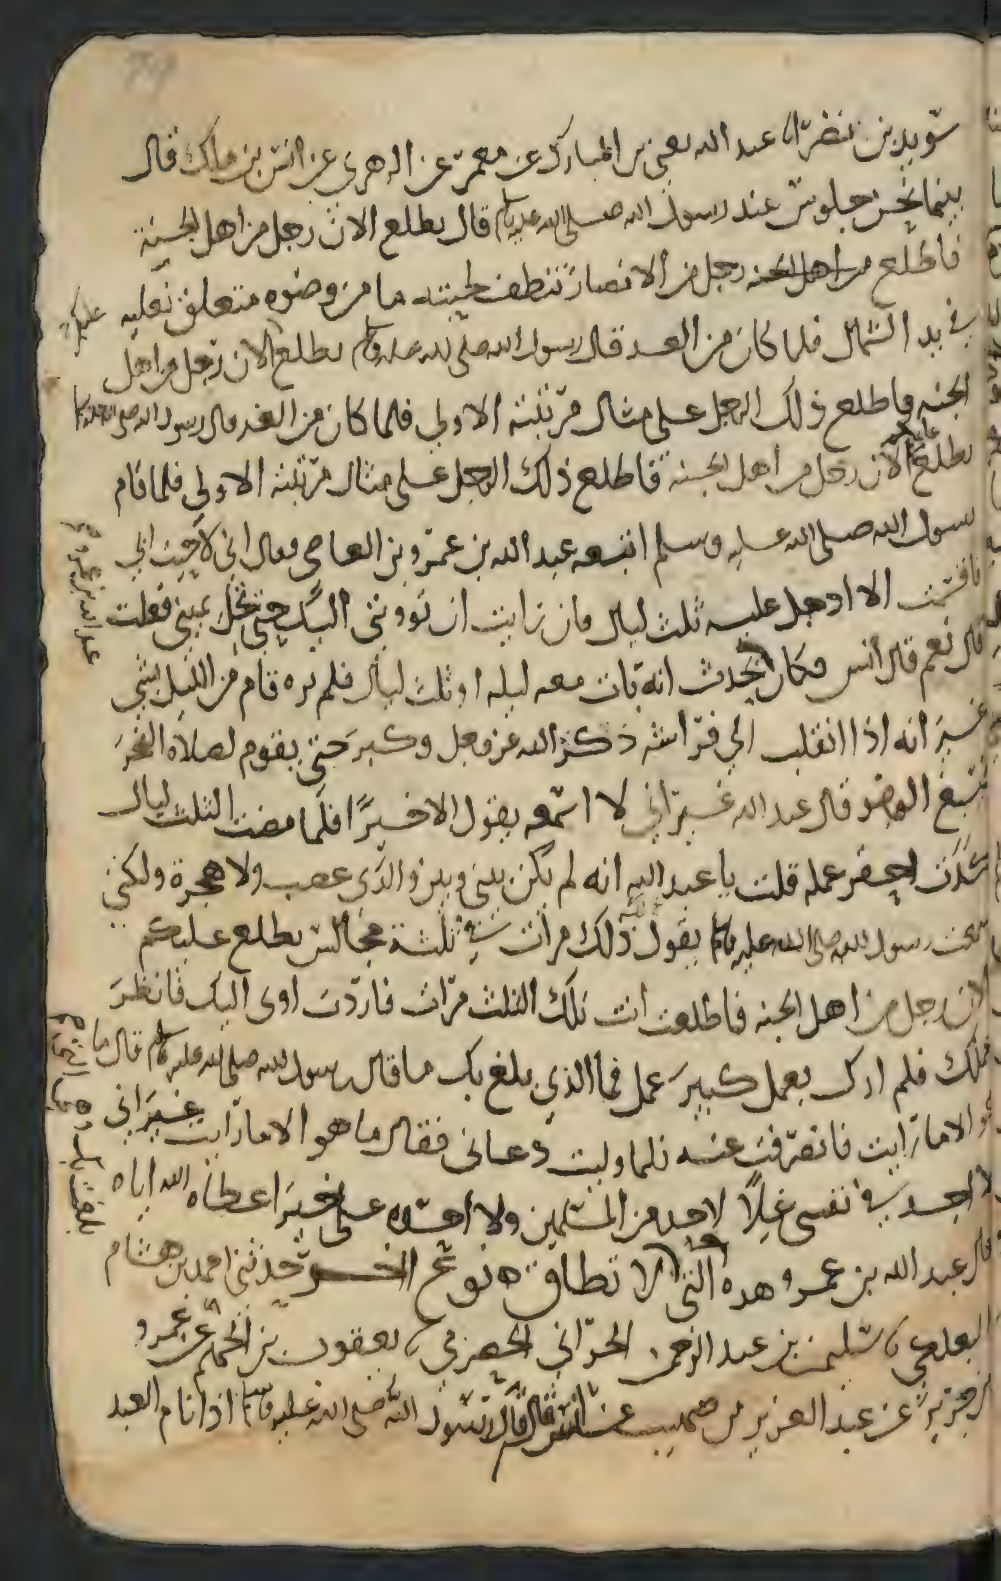 سويد بن نصر انا عبد الله يعني بن المبارك عن معمر عن الزهري عن انس بن مالك قال
بينما نحن جلوس عند رسول الله صلى الله عليه وسلم قال يطلع الان رجل من اهل الجنة
فاطلع من اهل الجنه رجل من الانصار تنطف لحيته ما من وضوه متعلق نعليه
في يد الشمال فلما كان من الغد قال رسول الله صلى الله عليه وسلم يطلع الان رجل من اهل
الجنه فاطلع ذلك الرجل على مثال مرتبته الاولي فلما كان من الغد قال رسول الله صلى الله عليه وسلم
يطلع الان رجل من اهل الجنة فاطلع ذلك الرجل على مثال مرتبته الاولى فلما قام
رسول الله صلى الله عليه وسلم اتبعه عبد الله بن عمرو بن العاصي فقال اني لاحيت ابي
فاقسمت الا ادخل عليه ثلث ليال فان رايت ان تووني اليك حتى تحل يميني فعلت
قال نعم قال انس فكان يحدث انه بات معه ليله او ثلث ليال فلم يره قام من الليل بشي
غير انه اذا انقلب الى فراشه ذكر الله عز وجل وكبر حتى يقوم لصلاه الفجر
فيسبغ الوضو قال عبد الله غير اني لا اسمعه يقول الا خيرا فلما مضت الثلث ليال
كدت احقر عمله قلت يا عبد الله انه لم يكن بيني وبين والدي غضب ولا هجرة ولكني
سمعت رسول الله صلى الله عليه وسلم يقول ذلك مرات في ثلثة مجالس يطلع عليكم
الان رجل من اهل الجنه فاطلعت انت تلك الثلث مرات فاردت اوي اليك فانظر
عملك فلم ارك بعمل كبير عمل فما الذي بلغ بك ما قال رسول الله صلى الله عليه وسلم قال ما
هو الا ما رايت فانصرفت عنه فلما وليت دعاني فقال ما هو الا ما رايت غير اني
لا اجد في نفسي غلا لاحد من المسلمين ولا احسده على خير اعطاه الله اياه
قال عبد الله بن عمرو هذه التي لا تطاق نوع اخر حدثني احمد بن هشام
البعلبكي نا سليمن بن عبد الرحمن الحراني الحضرمي نا يعقوب بن الجهم عن عمرو
بن جرير عن عبد العزيز بن صهيب عن انس قال قال رسول الله صلى الله عليه وسلم اذا نام العبد
عليكم
عبد الله بن عمرو